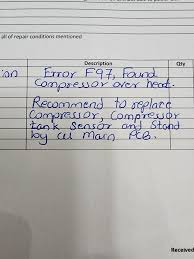 all of repair conditions mentioned
Description
Qty
ion
Error F97, Found
Compressor over heat.
Recommend to replace
Compressor, Compressor
tank Sensor and Stand
by CU Main PCB.
Received